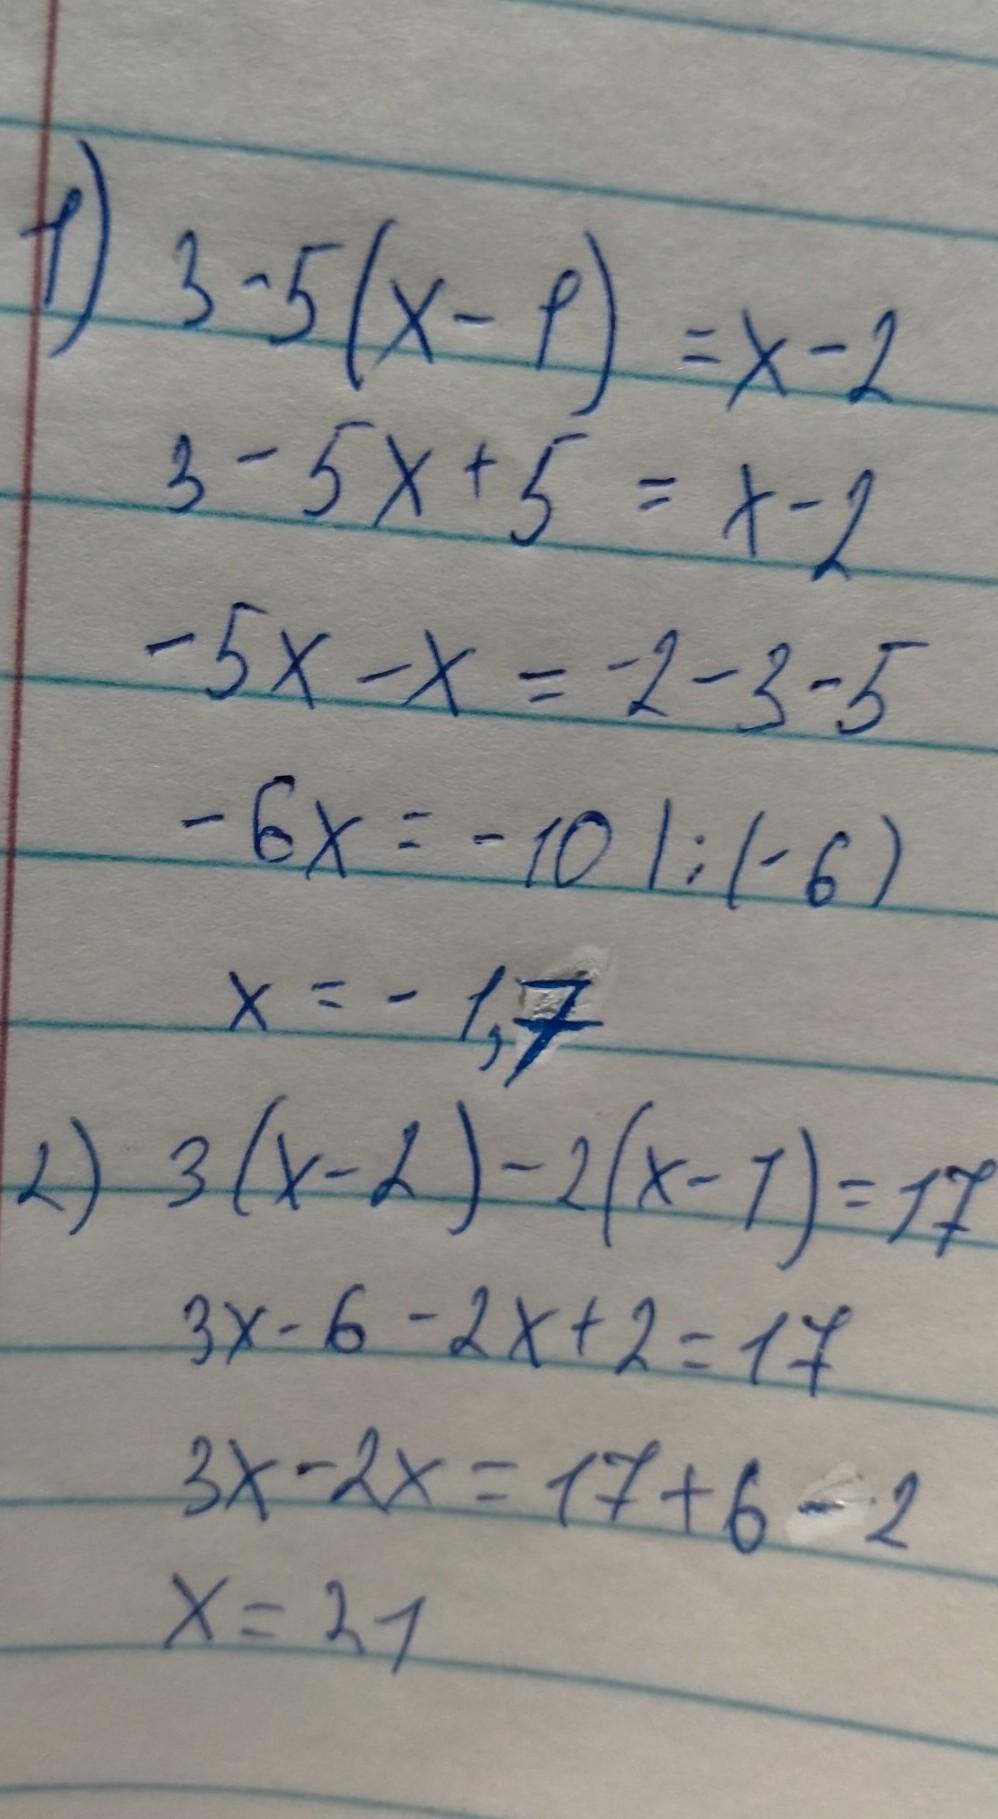 1) 3-5(x-1)=x-2
3-5x+5=x-2
-5x-x=-2-3-5
-6x=-10|:(-6)
x=-1,7
2) 3(x-2)-2(x-1)=17
3x-6-2x+2=17
3x-2x=17+6-2
x=21